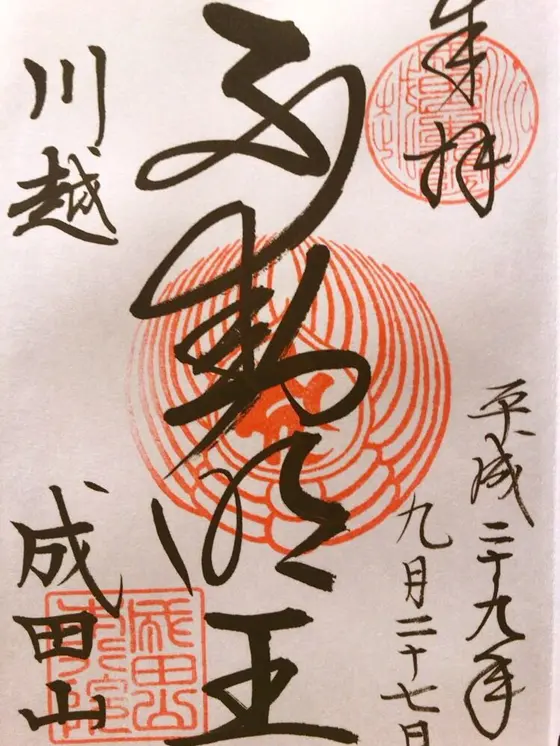 奉拝
平成二十九年
九月二十七日
不動明王
川越
成田山
成田山
本行院